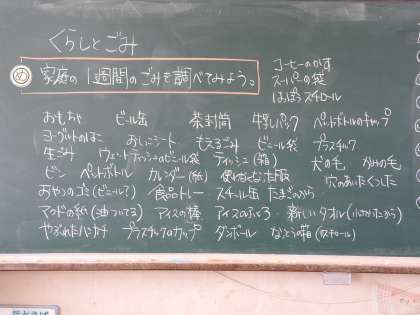 くらしとごみ
め 家庭の1週間のごみを調べてみよう。
コーヒーのかす
スーパーの袋
はっぽうスチロール
おもちゃ ビール缶 茶封筒 牛乳パック ペットボトルのキャップ
ヨーグルトのはこ おしっこシート もえるごみ ビニール袋 プラスチック
生ごみ ウェットティッシュのビニール袋 ティッシュ(箱) 犬の毛 かみの毛
ビン ペットボトル カレンダー(紙) 使わなくなった服 穴のあいたくつした
おやつのゴミ(ビニール) 食品トレー スチール缶 たまごのから
マクドの紙(油ついてる) アイスの棒 アイスのふくろ 新しいタオル
やぶれたハンカチ プラスチックのカップ ダンボール なっとうの箱